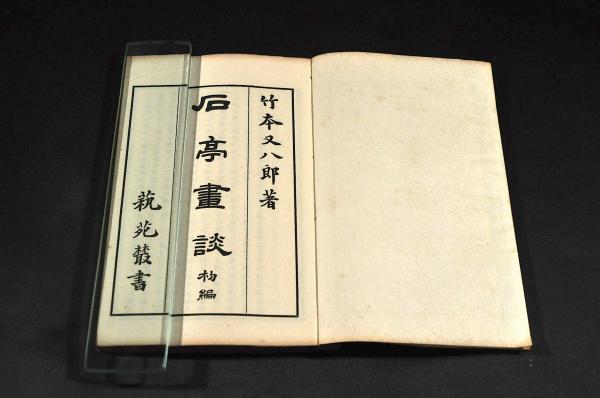 竹本又八郎著
石亭畫談
初編
萟苑叢書